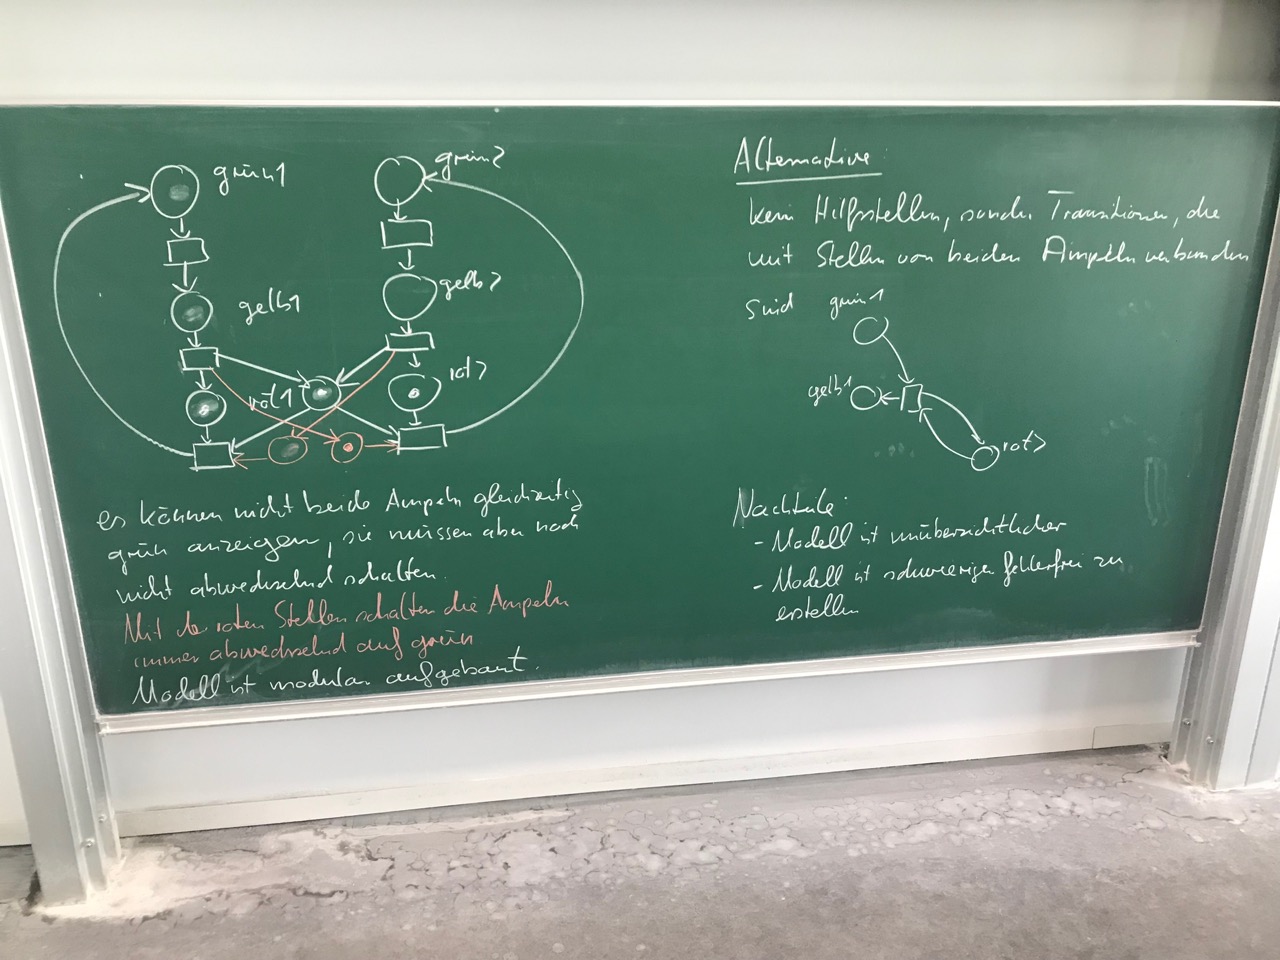 grün1
grün2
gelb1
gelb2
rot1
rot2
es können nicht beide Ampeln gleichzeitig
grün anzeigen, sie müssen aber noch
nicht abwechselnd schalten.
Mit den roten Stellen schalten die Ampeln
immer abwechselnd auf grün
Modell ist modular aufgebaut.
Alternative:
kein Hilfsstellen, sondern Transitionen, die
mit Stellen von beiden Ampeln verbunden
sind
grün1
gelb1
rot2
Nachteile:
- Modell ist unübersichtlicher
- Modell ist schwieriger fehlerfrei zu
erstellen